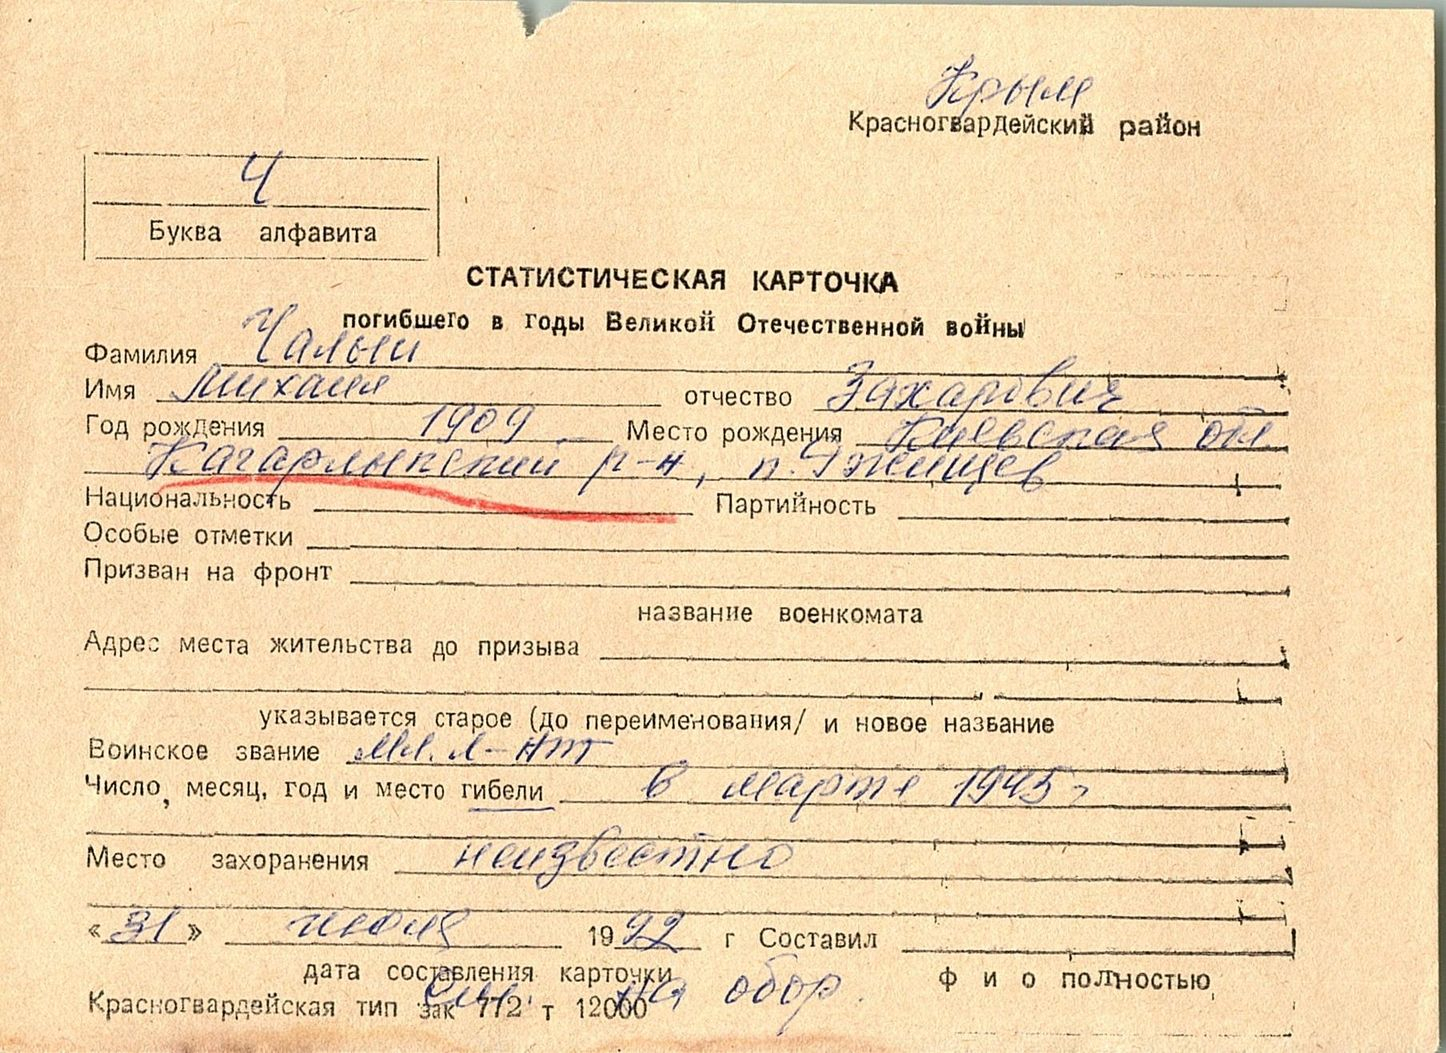 Крым
Красногвардейский район
Ч
Буква алфавита
СТАТИСТИЧЕСКАЯ КАРТОЧКА
погибшего в годы Великой Отечественной войны
Фамилия Чалый
Имя Михаил отчество Захарович
Год рождения 1909 Место рождения Киевская обл
Кагарлыкский р-н, п.
Национальность Партийность
Особые отметки
Призван на фронт
название военкомата
Адрес места жительства до призыва
указывается старое (до переименования/ и новое название
Воинское звание мл. л-нт
Число, месяц, год и место гибели в марте 1945 г
Место захоранения неизвестно
«31» июля 1992 г Составил
дата составления карточки ф и о полностью
См. на обор.
Красногвардейская тип зак 772 т 12000